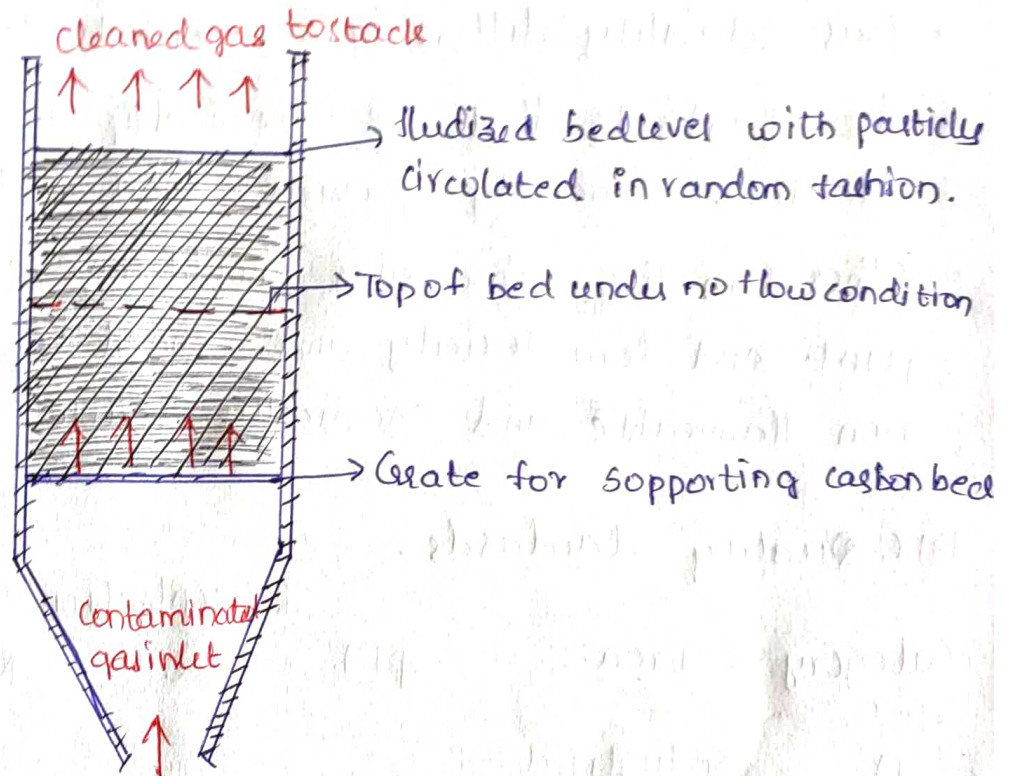 cleaned gas to stack
fludized bed level with particly
circolated in random fashion.
Top of bed under no flow condition
Grate for sopporting carbon bed
Contaminated
gas inlet